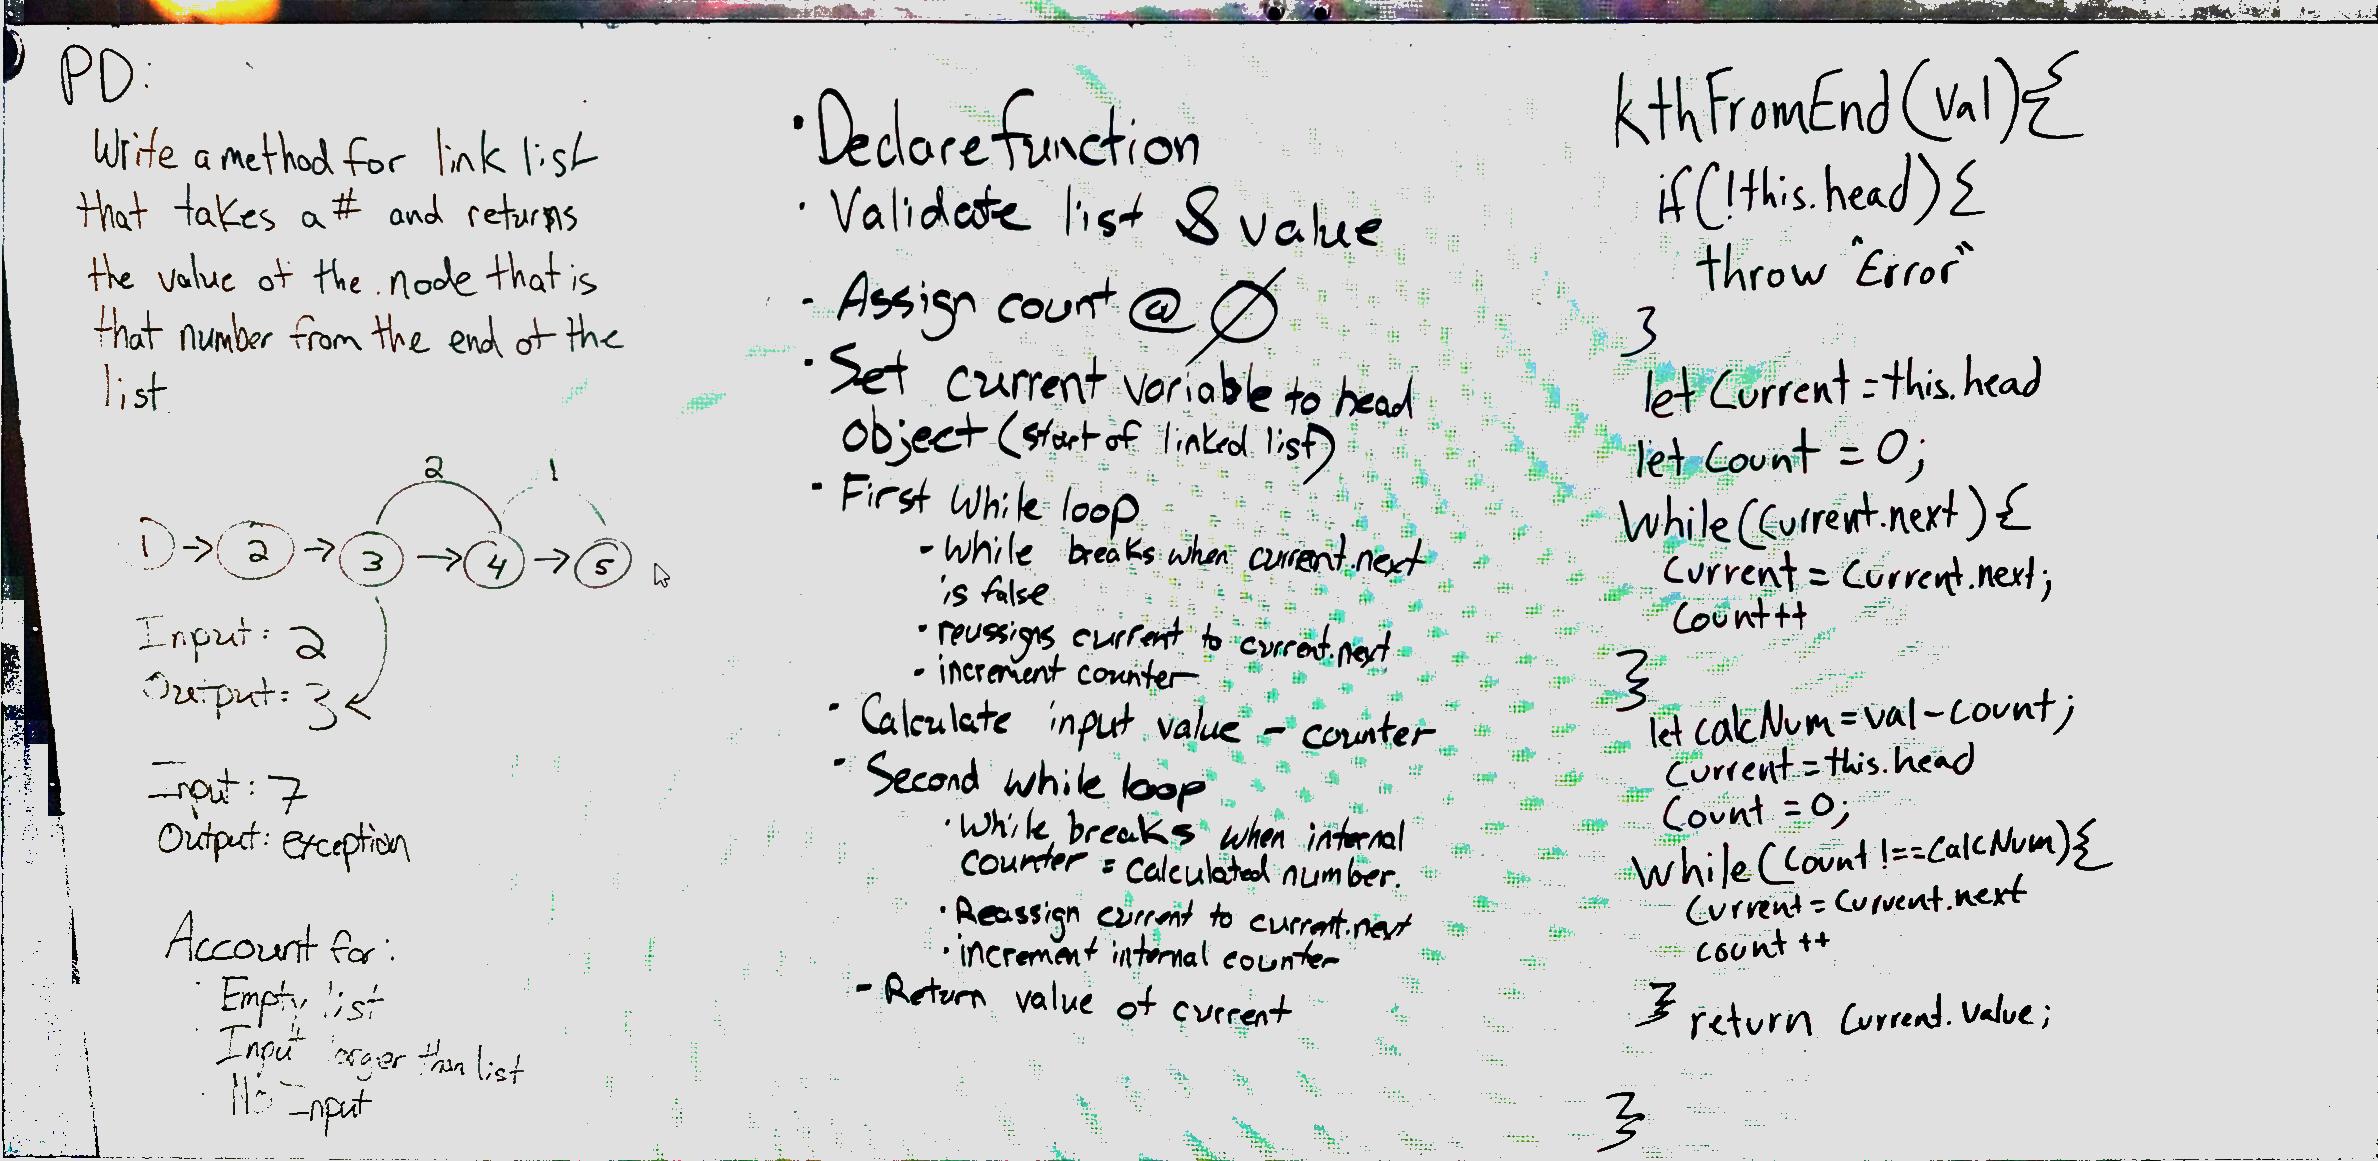 PD:
Write a method for link list
that takes a # and returns
the value of the node that is
that number from the end of the
list
2 1
1 → 2 → 3 → 4 → 5
Input: 2
Output: 3
Input: 7
Output: exception
Account for:
Empty list
Input larger than list
No Input
• Declare function
• Validate list & value
- Assign count @ 0
• Set current variable to head
object (start of linked list)
- First While loop
- While breaks when current.next
is false
• reussigns current to current.next
• increment counter
• Calculate input value - counter
- Second while loop
• While breaks when internal
counter = calculated number.
• Reassign current to current.next
• increment internal counter
- Return value of current
kthFromEnd(val){
if(!this.head){
throw "Error"
}
let Current = this.head
let Count = 0;
While(Current.next){
Current = Current.next;
Count++
}
let calcNum = val - Count;
Current = this.head
Count = 0;
While(Count !== CalcNum){
Current = Current.next
count ++
}
return Current.value;
}